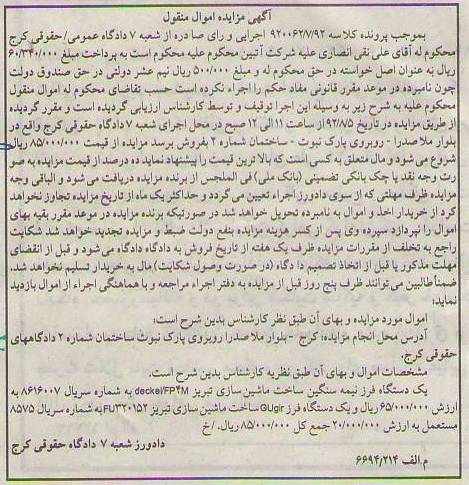 آگهی مزایده اموال منقول
بموجب پرونده کلاسه ۹۲۰۰۶۲/۷/۹۲ اجرایی و رای صادره از شعبه ۷ دادگاه عمومی/حقوقی کرج
محکوم له آقای علی نقی انصاری علیه شرکت آتبین محکوم علیه محکوم است به پرداخت مبلغ ۶۰/۳۴۰/۰۰۰
ریال به عنوان اصل خواسته در حق محکوم له و مبلغ ۵۰۰/۰۰۰ ریال نیم عشر دولتی در حق صندوق دولت
چون نامبرده در موعد مقرر قانونی مفاد حکم را اجراء نکرده است حسب تقاضای محکوم له اموال منقول
محکوم علیه به شرح زیر به وسیله این اجرا توقیف و توسط کارشناس ارزیابی گردیده است و مقرر گردیده
از طریق مزایده در تاریخ ۹۲/۸/۵ از ساعت ۱۱ الی ۱۲ صبح در محل اجرای شعبه ۷ دادگاه حقوقی کرج واقع در
بلوار ملاصدرا - روبروی پارک نبوت - ساختمان شماره ۲ بفروش برسد مزایده از قیمت ۸۵/۰۰۰/۰۰۰ ریال
شروع می شود و مال متعلق به کسی است که بالاترین قیمت را پیشنهاد نماید ده درصد از قیمت مزایده به صو
رت وجه نقد یا چک بانکی تضمینی (بانک ملی) فی المجلس از برنده مزایده دریافت می شود و الباقی وجه
مزایده ظرف مهلتی که از سوی دادورز اجراء تعیین می گردد و حداکثر یک ماه از تاریخ مزایده تجاوز نخواهد
کرد از خریدار اخذ و اموال به نامبرده تحویل خواهد شد. در صورتیکه برنده مزایده در موعد مقرر بقیه بهای
اموال را نپردازد سپرده وی پس از کسر هزینه مزایده بنفع دولت ضبط و مزایده تجدید خواهد شد شکایت
راجع به تخلف از مقررات مزایده ظرف یک هفته از تاریخ فروش به دادگاه داده می شود و قبل از انقضای
مهلت مذکور یا قبل از اتخاذ تصمیم دادگاه (در صورت وصول شکایت) مال به خریدار تسلیم نخواهد شد.
ضمناً طالبین می توانند ظرف پنج روز قبل از مزایده به دفتر اجراء مراجعه و با هماهنگی اجراء از اموال بازدید
نمایند:
اموال مورد مزایده و بهای آن طبق نظر کارشناس بدین شرح است:
آدرس محل انجام مزایده: کرج - بلوار ملاصدرا روبروی پارک نبوت ساختمان شماره ۲ دادگاههای
حقوقی کرج.
مشخصات اموال و بهای آن طبق نظریه کارشناس بدین شرح است.
یک دستگاه فرز نیمه سنگین ساخت ماشین سازی تبریز deckel/FP۴M به شماره سریال ۸۶۱۶۰۰۷ به
ارزش ۶۵/۰۰۰/۰۰۰ ریال و یک دستگاه فرز Glugir ساخت ماشین سازی تبریز FU۳۲۰۱۵۲ به شماره سریال ۸۵۷۵
مستعمل به ارزش ۲۰/۰۰۰/۰۰۰ جمع کل ۸۵/۰۰۰/۰۰۰ ریال. /خ
دادورز شعبه ۷ دادگاه حقوقی کرج
م.الف ۶۶۹۴/۲۱۴